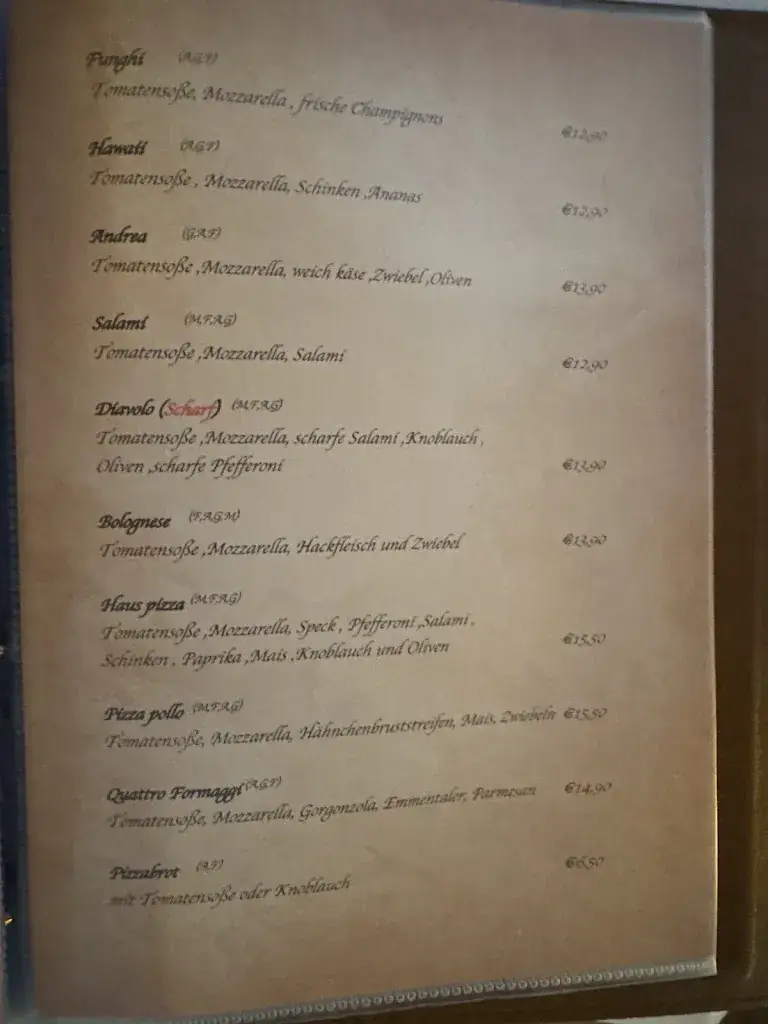 Funghi (A,G,F)
Tomatensoße, Mozzarella , frische Champignons
€12,90
Hawaii (A,G,F)
Tomatensoße , Mozzarella, Schinken ,Ananas
€12,90
Andrea (G,A,F)
Tomatensoße ,Mozzarella, weich käse ,Zwiebel ,Oliven
€13,90
Salami (M,F,A,G)
Tomatensoße ,Mozzarella, Salami
€12,90
Diavolo (Scharf) (M,F,A,G)
Tomatensoße ,Mozzarella, scharfe Salami ,Knoblauch ,
Oliven ,scharfe Pfefferoni €13,90
Bolognese (F,A,G,M)
Tomatensoße ,Mozzarella, Hackfleisch und Zwiebel €13,90
Haus pizza (M,F,A,G)
Tomatensoße ,Mozzarella, Speck , Pfefferoni ,Salami ,
Schinken , Paprika ,Mais ,Knoblauch und Oliven €15,50
Pizza pollo (M,F,A,G)
Tomatensoße, Mozzarella, Hähnchenbruststreifen, Mais, Zwiebeln €15,50
Quattro Formaggi (A,G,F)
Tomatensoße, Mozzarella, Gorgonzola, Emmentaler, Parmesan €14,90
Pizzabrot (A,F) €6,50
mit Tomatensoße oder Knoblauch